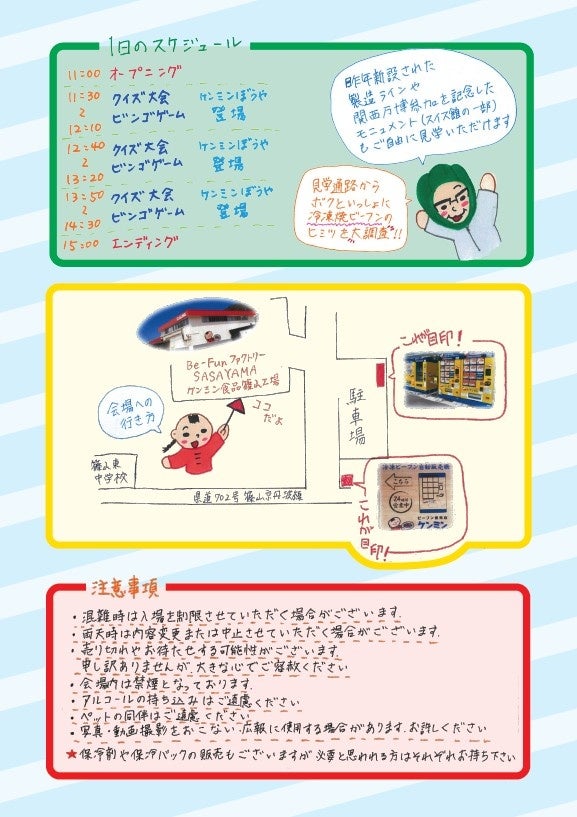 1日のスケジュール
11:00 オープニング
11:30 クイズ大会 ケンミンぼうや
〜 ビンゴゲーム 登場
12:10
12:40 クイズ大会 ケンミンぼうや
〜 ビンゴゲーム 登場
13:20
13:50 クイズ大会 ケンミンぼうや
〜 ビンゴゲーム 登場
14:30
15:00 エンディング
昨年新設された
製造ラインや
関西万博参加を記念した
モニュメント(スイス館の一部)
もご自由に見学いただけます
見学通路から
ボクといっしょに
冷凍焼ビーフンの
ヒミツを大調査!!
Be-Funファクトリー
SASAYAMA
ケンミン食品篠山工場
会場への
行き方
ココ
だよ
篠山東
中学校
県道702号 篠山京丹波線
駐車場
これが目印!
冷凍ビーフン自動販売機
こちら
24時間
営業中
ビーフン自販機
ケンミン
これが目印!
注意事項
・混雑時は入場を制限させていただく場合がございます.
・雨天時は内容変更または中止させていただく場合がございます.
・売り切れやお待たせする可能性がございます.
申し訳ありませんが、大きな心でご容赦ください
・会場内は禁煙となっております.
・アルコールの持ち込みはご遠慮ください
・ペットの同伴はご遠慮ください
・写真・動画撮影をおこない、広報に使用する場合があります.お許しください
★保冷剤や保冷バックの販売もございますが 必要と思われる方はそれぞれお持ち下さい